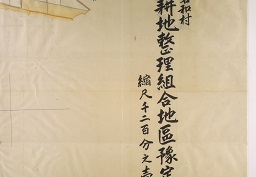 和村
耕地整理組合地區豫定
縮尺千二百分之壱